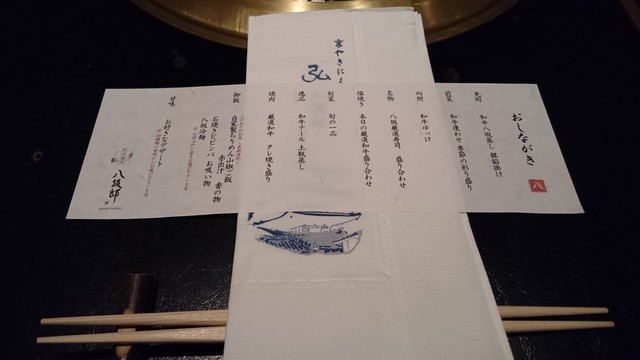 京やきにく
弘
おしながき
八
先附
和牛八坂蒸し 銀餡掛け
前菜
和牛逢わせ 季節の彩り盛り
向附
和牛ゆっけ
名物
八坂厳選寿司 盛り合わせ
塩焼き
本日の厳選和牛盛り合わせ
旬菜
旬の一品
逸品
和牛テール 土瓶蒸し
焼肉
厳選和牛 タレ焼き盛り
御飯
自家製ちりめん山椒ご飯
赤出汁 香の物
石焼きビビンバ お吸い物
八坂冷麺
甘味
お好きなデザート
弘 八坂邸